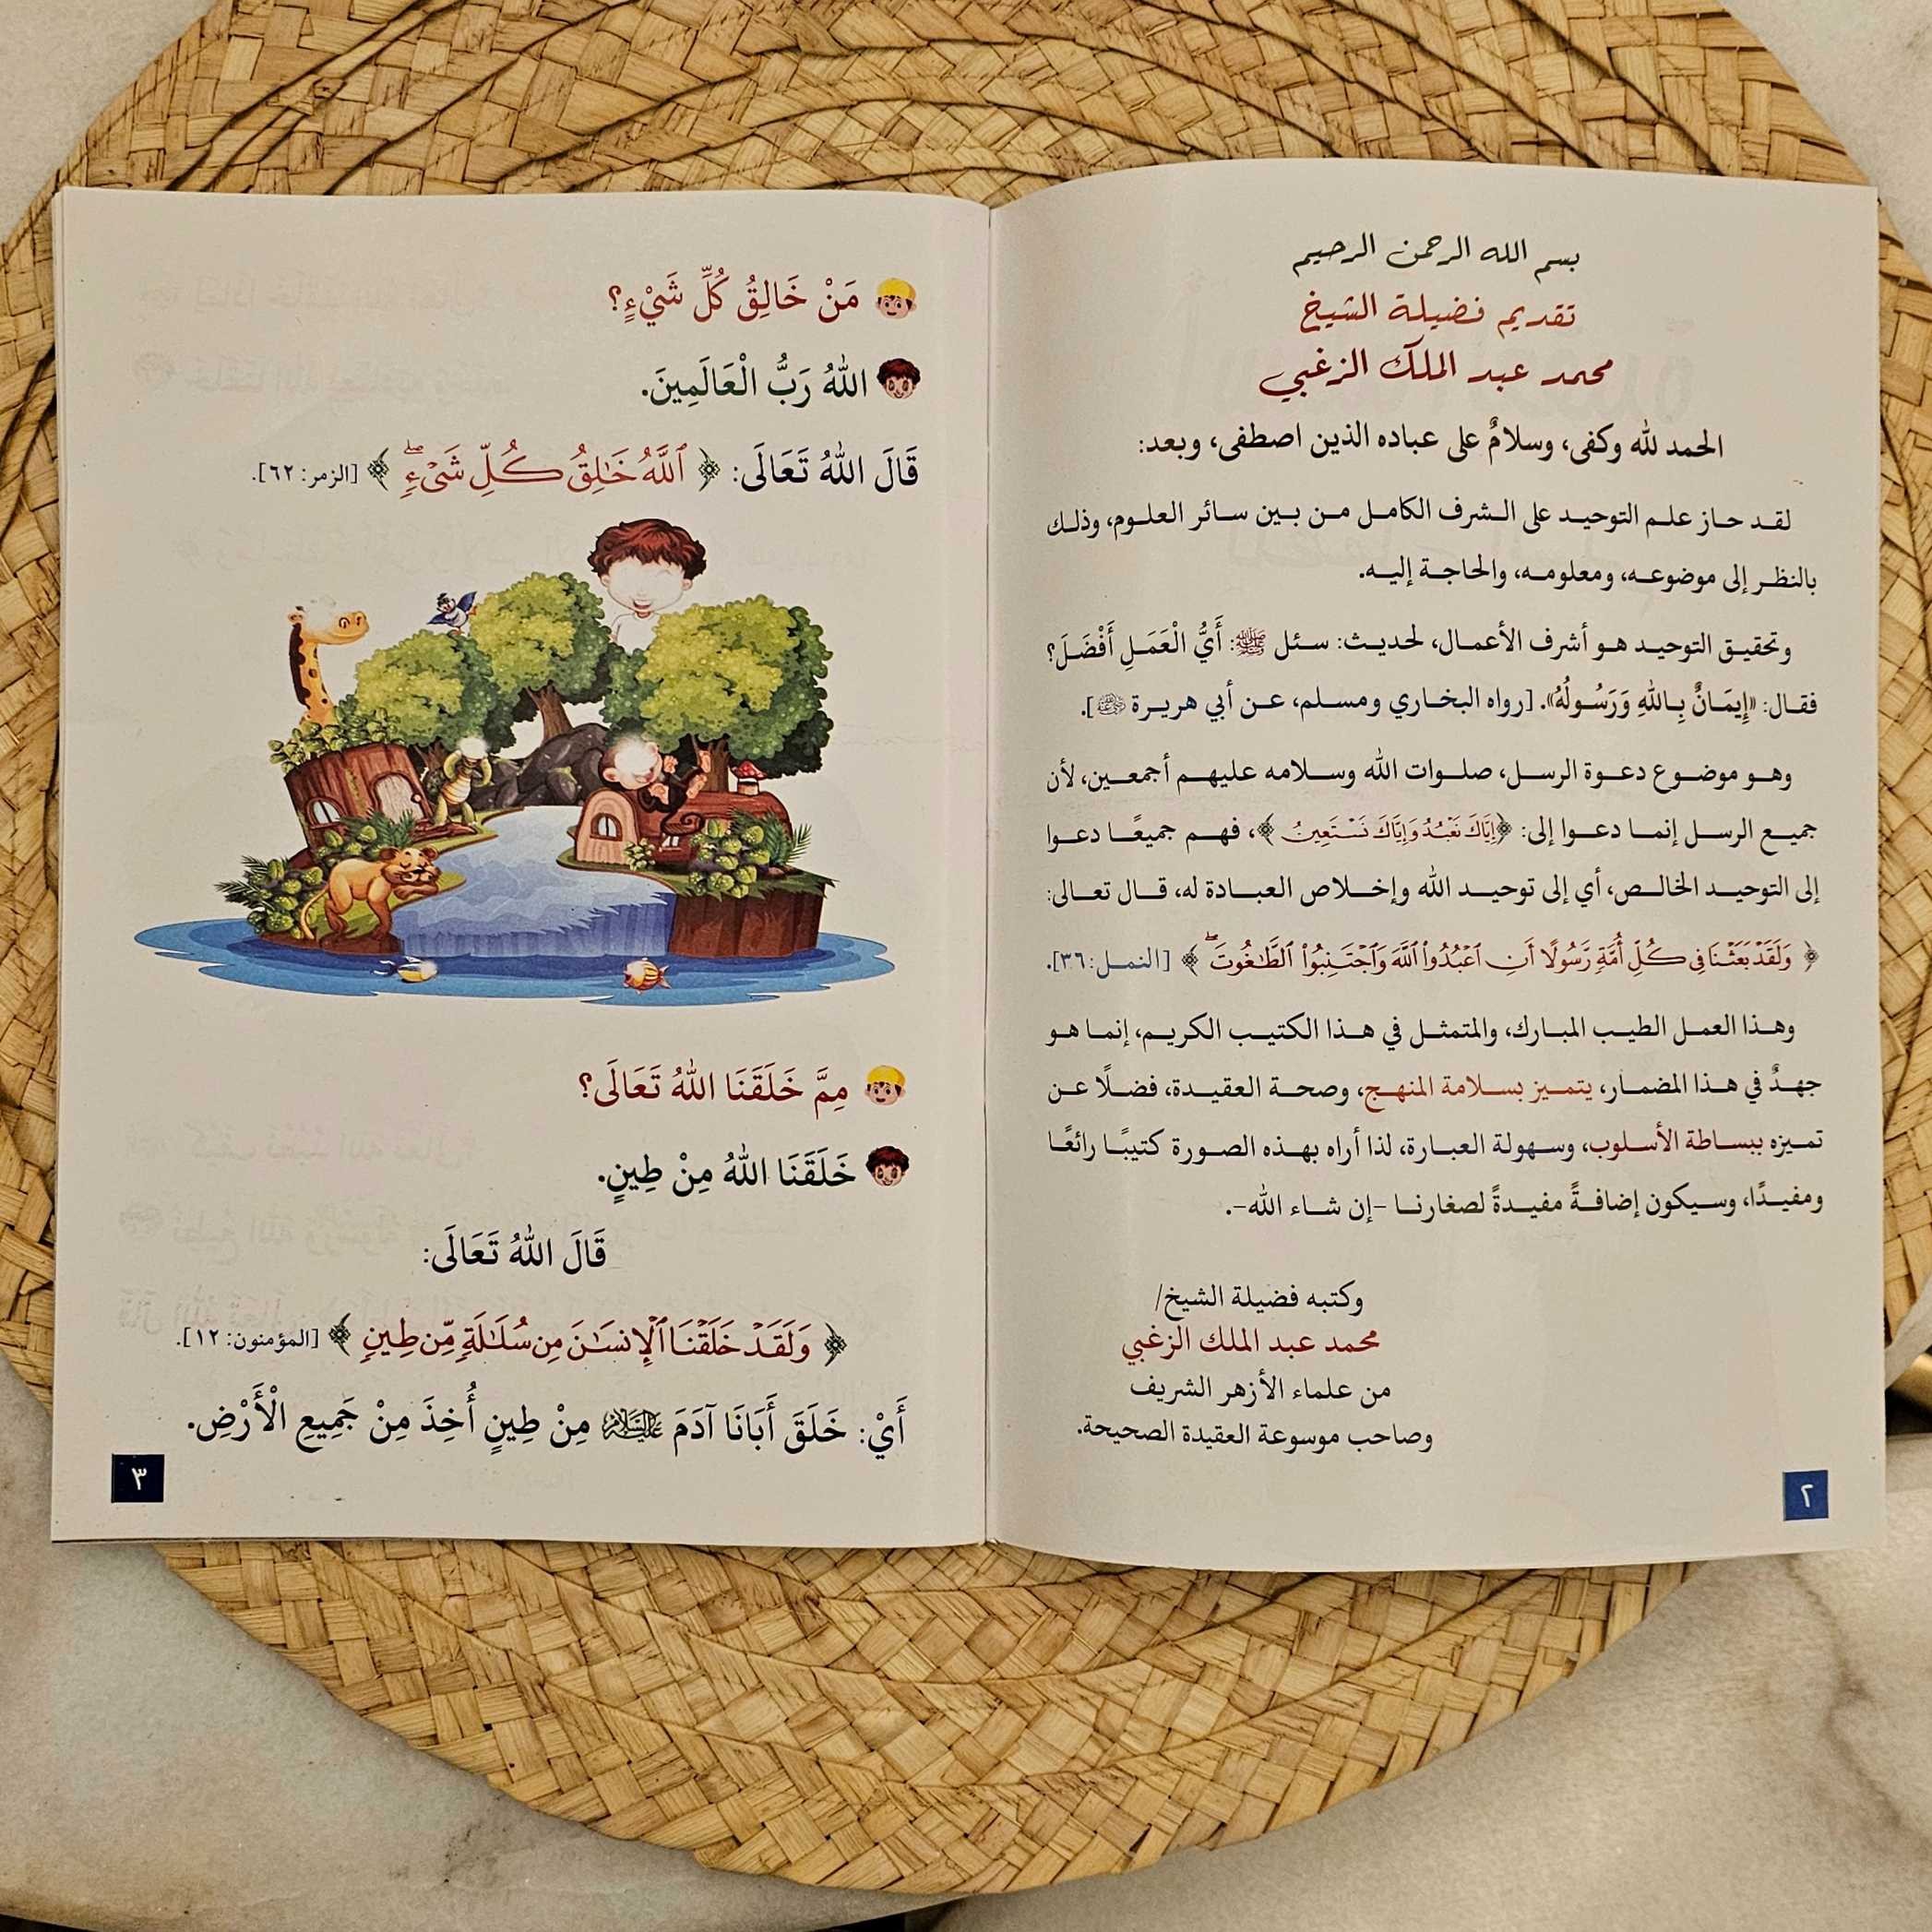 بسم الله الرحمن الرحيم
تقديم فضيلة الشيخ
محمد عبد الملك الزغبي
الحمد لله وكفى، وسلامٌ على عباده الذين اصطفى، وبعد:
لقد حاز علم التوحيد على الشرف الكامل من بين سائر العلوم، وذلك
بالنظر إلى موضوعه، ومعلومه، والحاجة إليه.
وتحقيق التوحيد هو أشرف الأعمال، لحديث: سئل ﷺ: أَيُّ الْعَمَلِ أَفْضَلَ؟
فقال: «إِيمَانٌ بِاللهِ وَرَسُولُهُ». [رواه البخاري ومسلم، عن أبي هريرة ﵁].
وهو موضوع دعوة الرسل، صلوات الله وسلامه عليهم أجمعين، لأن
جميع الرسل إنما دعوا إلى: ﴿إِيَّاكَ نَعْبُدُ وَإِيَّاكَ نَسْتَعِينُ﴾، فهم جميعًا دعوا
إلى التوحيد الخالص، أي إلى توحيد الله وإخلاص العبادة له، قال تعالى:
﴿وَلَقَدْ بَعَثْنَا فِي كُلِّ أُمَّةٍ رَّسُولًا أَنِ ٱعْبُدُوا۟ ٱللَّهَ وَٱجْتَنِبُوا۟ ٱلطَّـٰغُوتَۖ﴾ [النمل: ٣٦].
وهذا العمل الطيب المبارك، والمتمثل في هذا الكتيب الكريم، إنما هو
جهدٌ في هذا المضمار، يتميز بسلامة المنهج، وصحة العقيدة، فضلًا عن
تميزه ببساطة الأسلوب، وسهولة العبارة، لذا أراه بهذه الصورة كتيبًا رائعًا
ومفيدًا، وسيكون إضافةً مفيدةً لصغارنا -إن شاء الله-.
وكتبه فضيلة الشيخ/
محمد عبد الملك الزغبي
من علماء الأزهر الشريف
وصاحب موسوعة العقيدة الصحيحة.
٢
مَنْ خَالِقُ كُلِّ شَيْءٍ؟
اللهُ رَبُّ الْعَالَمِينَ.
قَالَ اللهُ تَعَالَى: ﴿ٱللَّهُ خَـٰلِقُ كُلِّ شَىْءٍۖ﴾ [الزمر: ٦٢].
مِمَّ خَلَقَنَا اللهُ تَعَالَى؟
خَلَقَنَا اللهُ مِنْ طِينٍ.
قَالَ اللهُ تَعَالَى:
﴿وَلَقَدْ خَلَقْنَا ٱلْإِنسَـٰنَ مِن سُلَـٰلَةٍ مِّن طِينٍ﴾ [المؤمنون: ١٢].
أَيْ: خَلَقَ أَبَانَا آدَمَ عَلَيْهِ السَّلَامُ مِنْ طِينٍ أُخِذَ مِنْ جَمِيعِ الْأَرْضِ.
٣